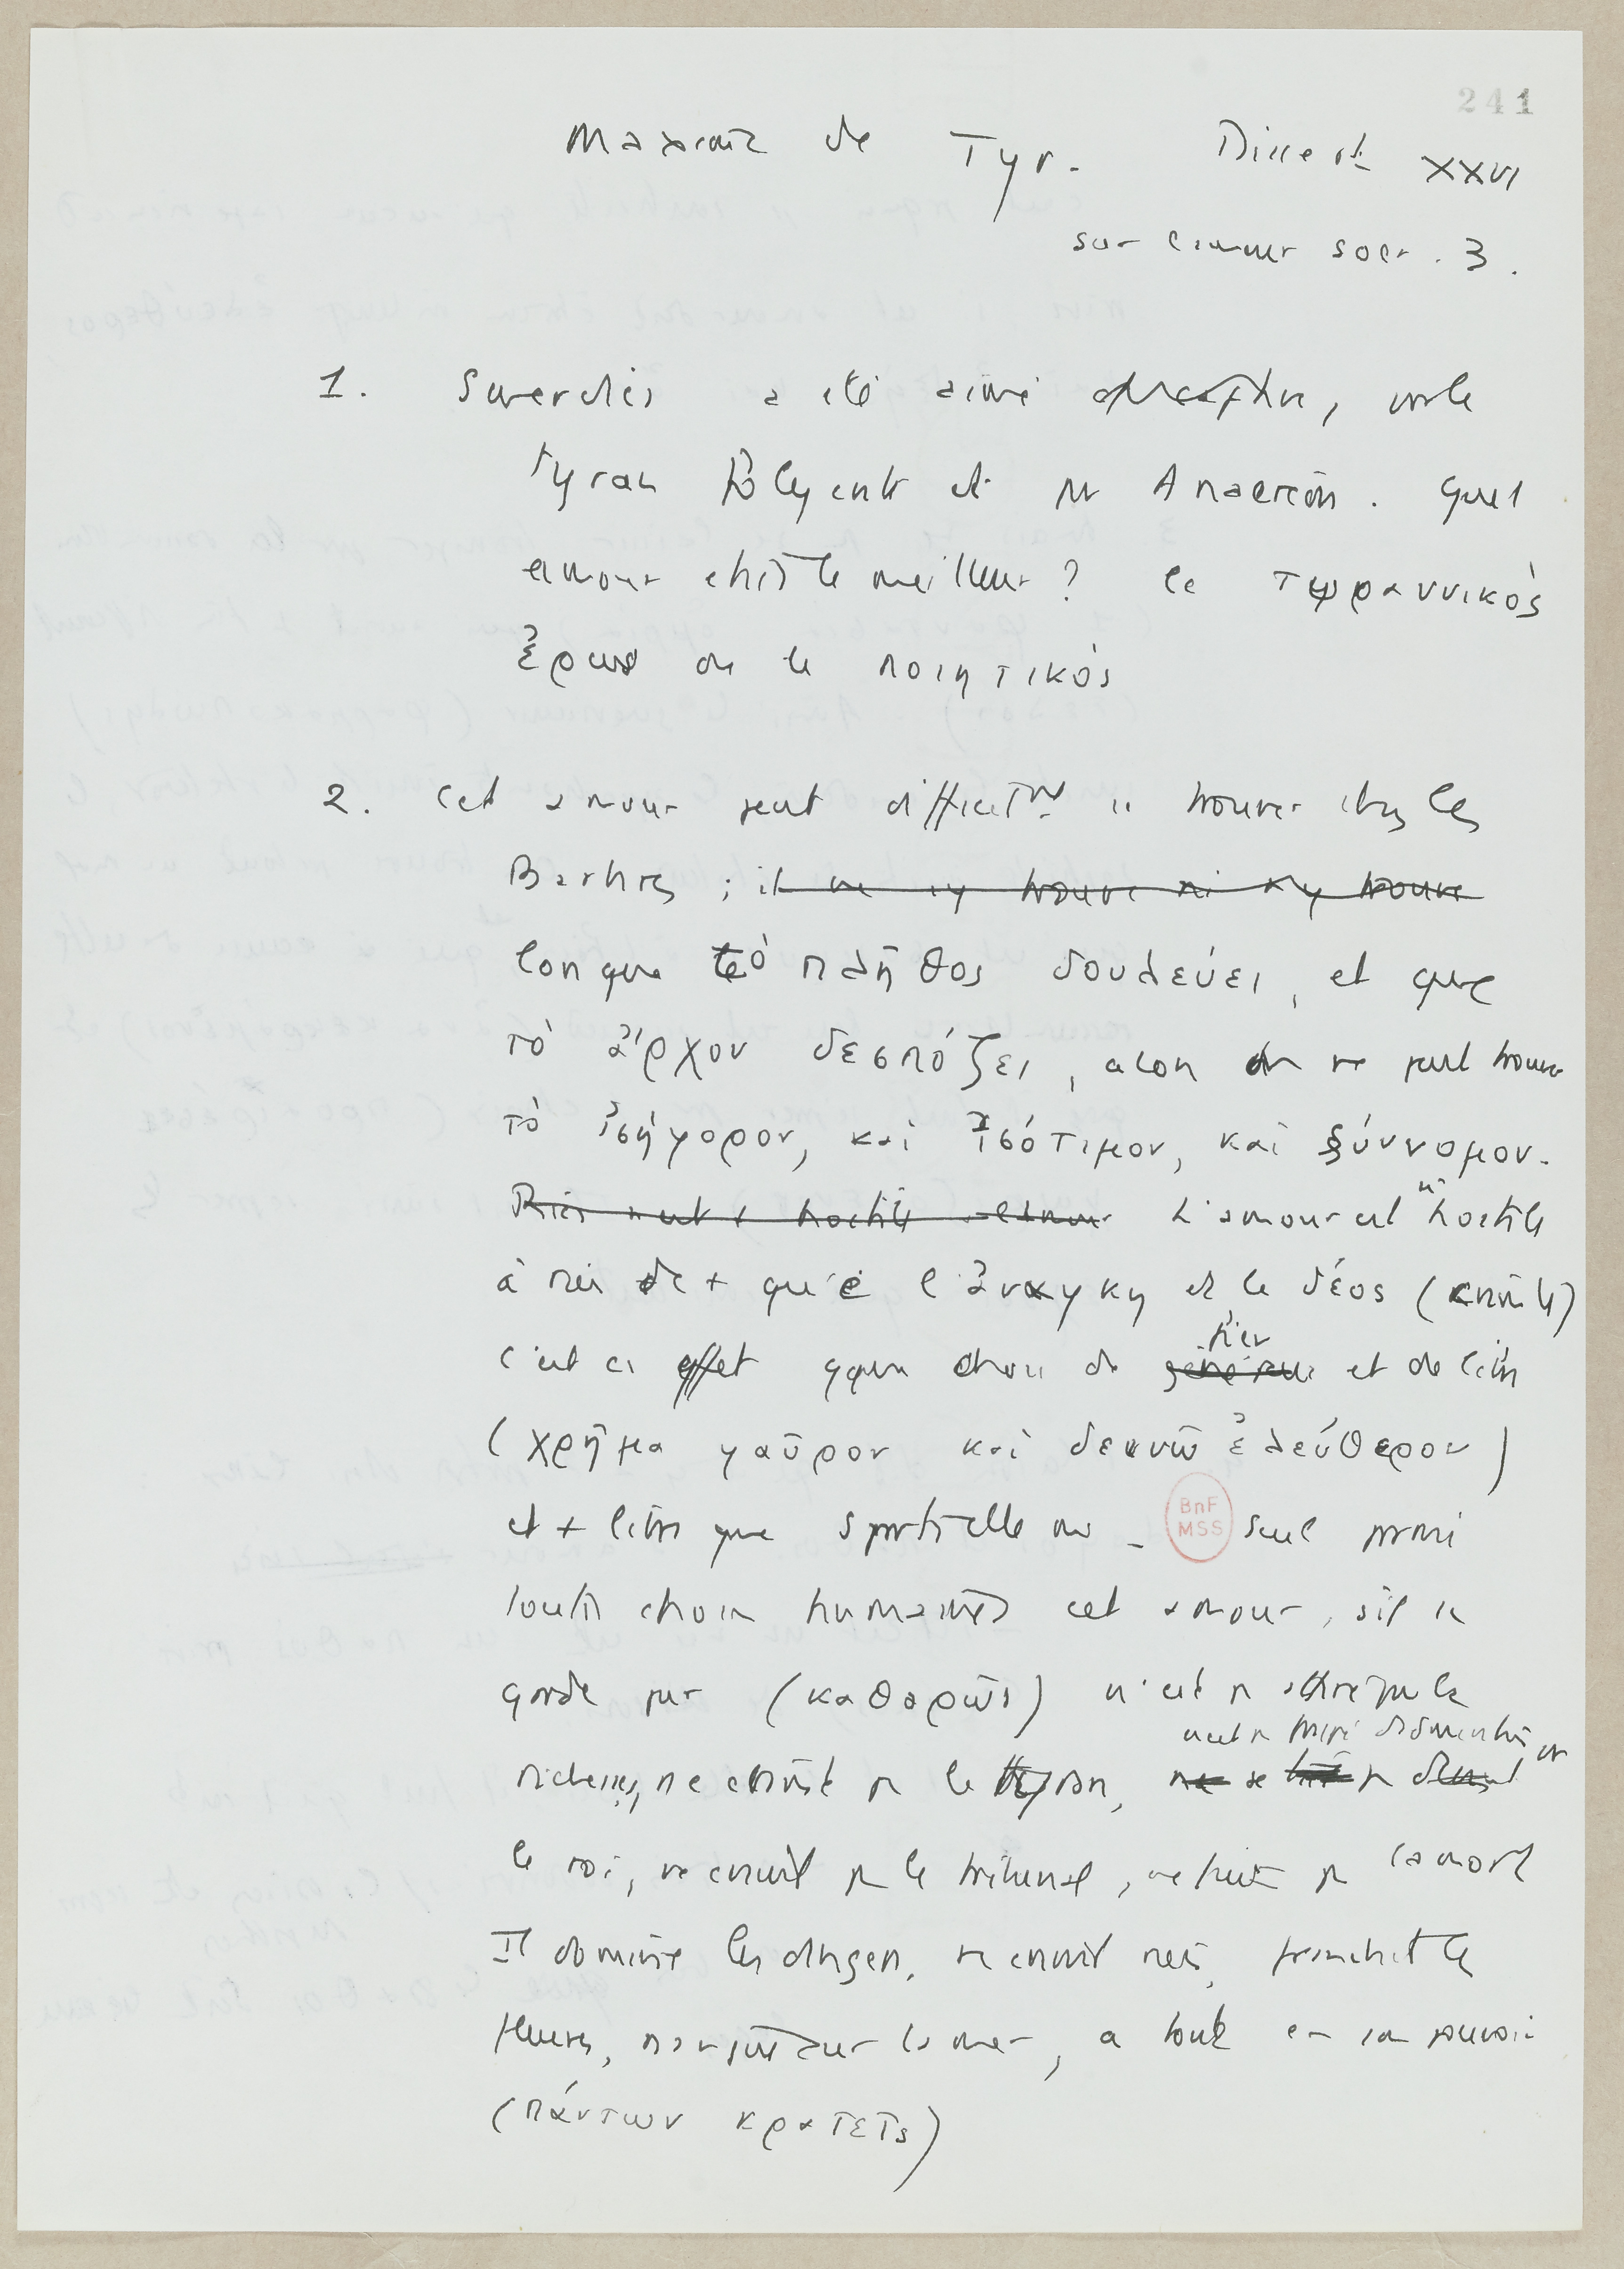 241
Maxime de Tyr. Dissert XXVI
sur l'amour socr. 3.
1. Smerdiès a été aimé par le
tyran Polycrate et par Anacréon. Quel
amour était le meilleur ? le τυραννικὸς
ἔρως ou le ποιητικὸς
2. Cet amour peut difficilement se trouver chez les
Barbares ; il ne s'y trouve ni s'y trouve
lorsque τὸ πλῆθος δουλεύει, et que
τὸ ἄρχον δεσπόζει, alors on ne peut trouver
τὸ ἰσήγορον, καὶ ἰσότιμον, καὶ ξύννομον.
Rien n'est + hostile à l'amour L'amour est hostile
à rien de + qu'à l'ἀνάγκη et le δέος (crainte)
fier
c'est en effet qque chose de généreux et de libre
(χρῆμα γαῦρον καὶ δεινῶς ἐλεύθερον)
et + libre que Sparte elle même - BnF MSS seul parmi
toutes choses humaines cet amour, s'il se
garde pur (καθαρῶς) n'est pas par la
richesse, ne craint pas le tyran,
le roi, ne craint pas le tribunal, ne fuit pas la mort
Il domine les dangers, ne craint rien, franchit les
fleuves, sur la mer, a tout en son pouvoir
(πάντων κρατεῖς)